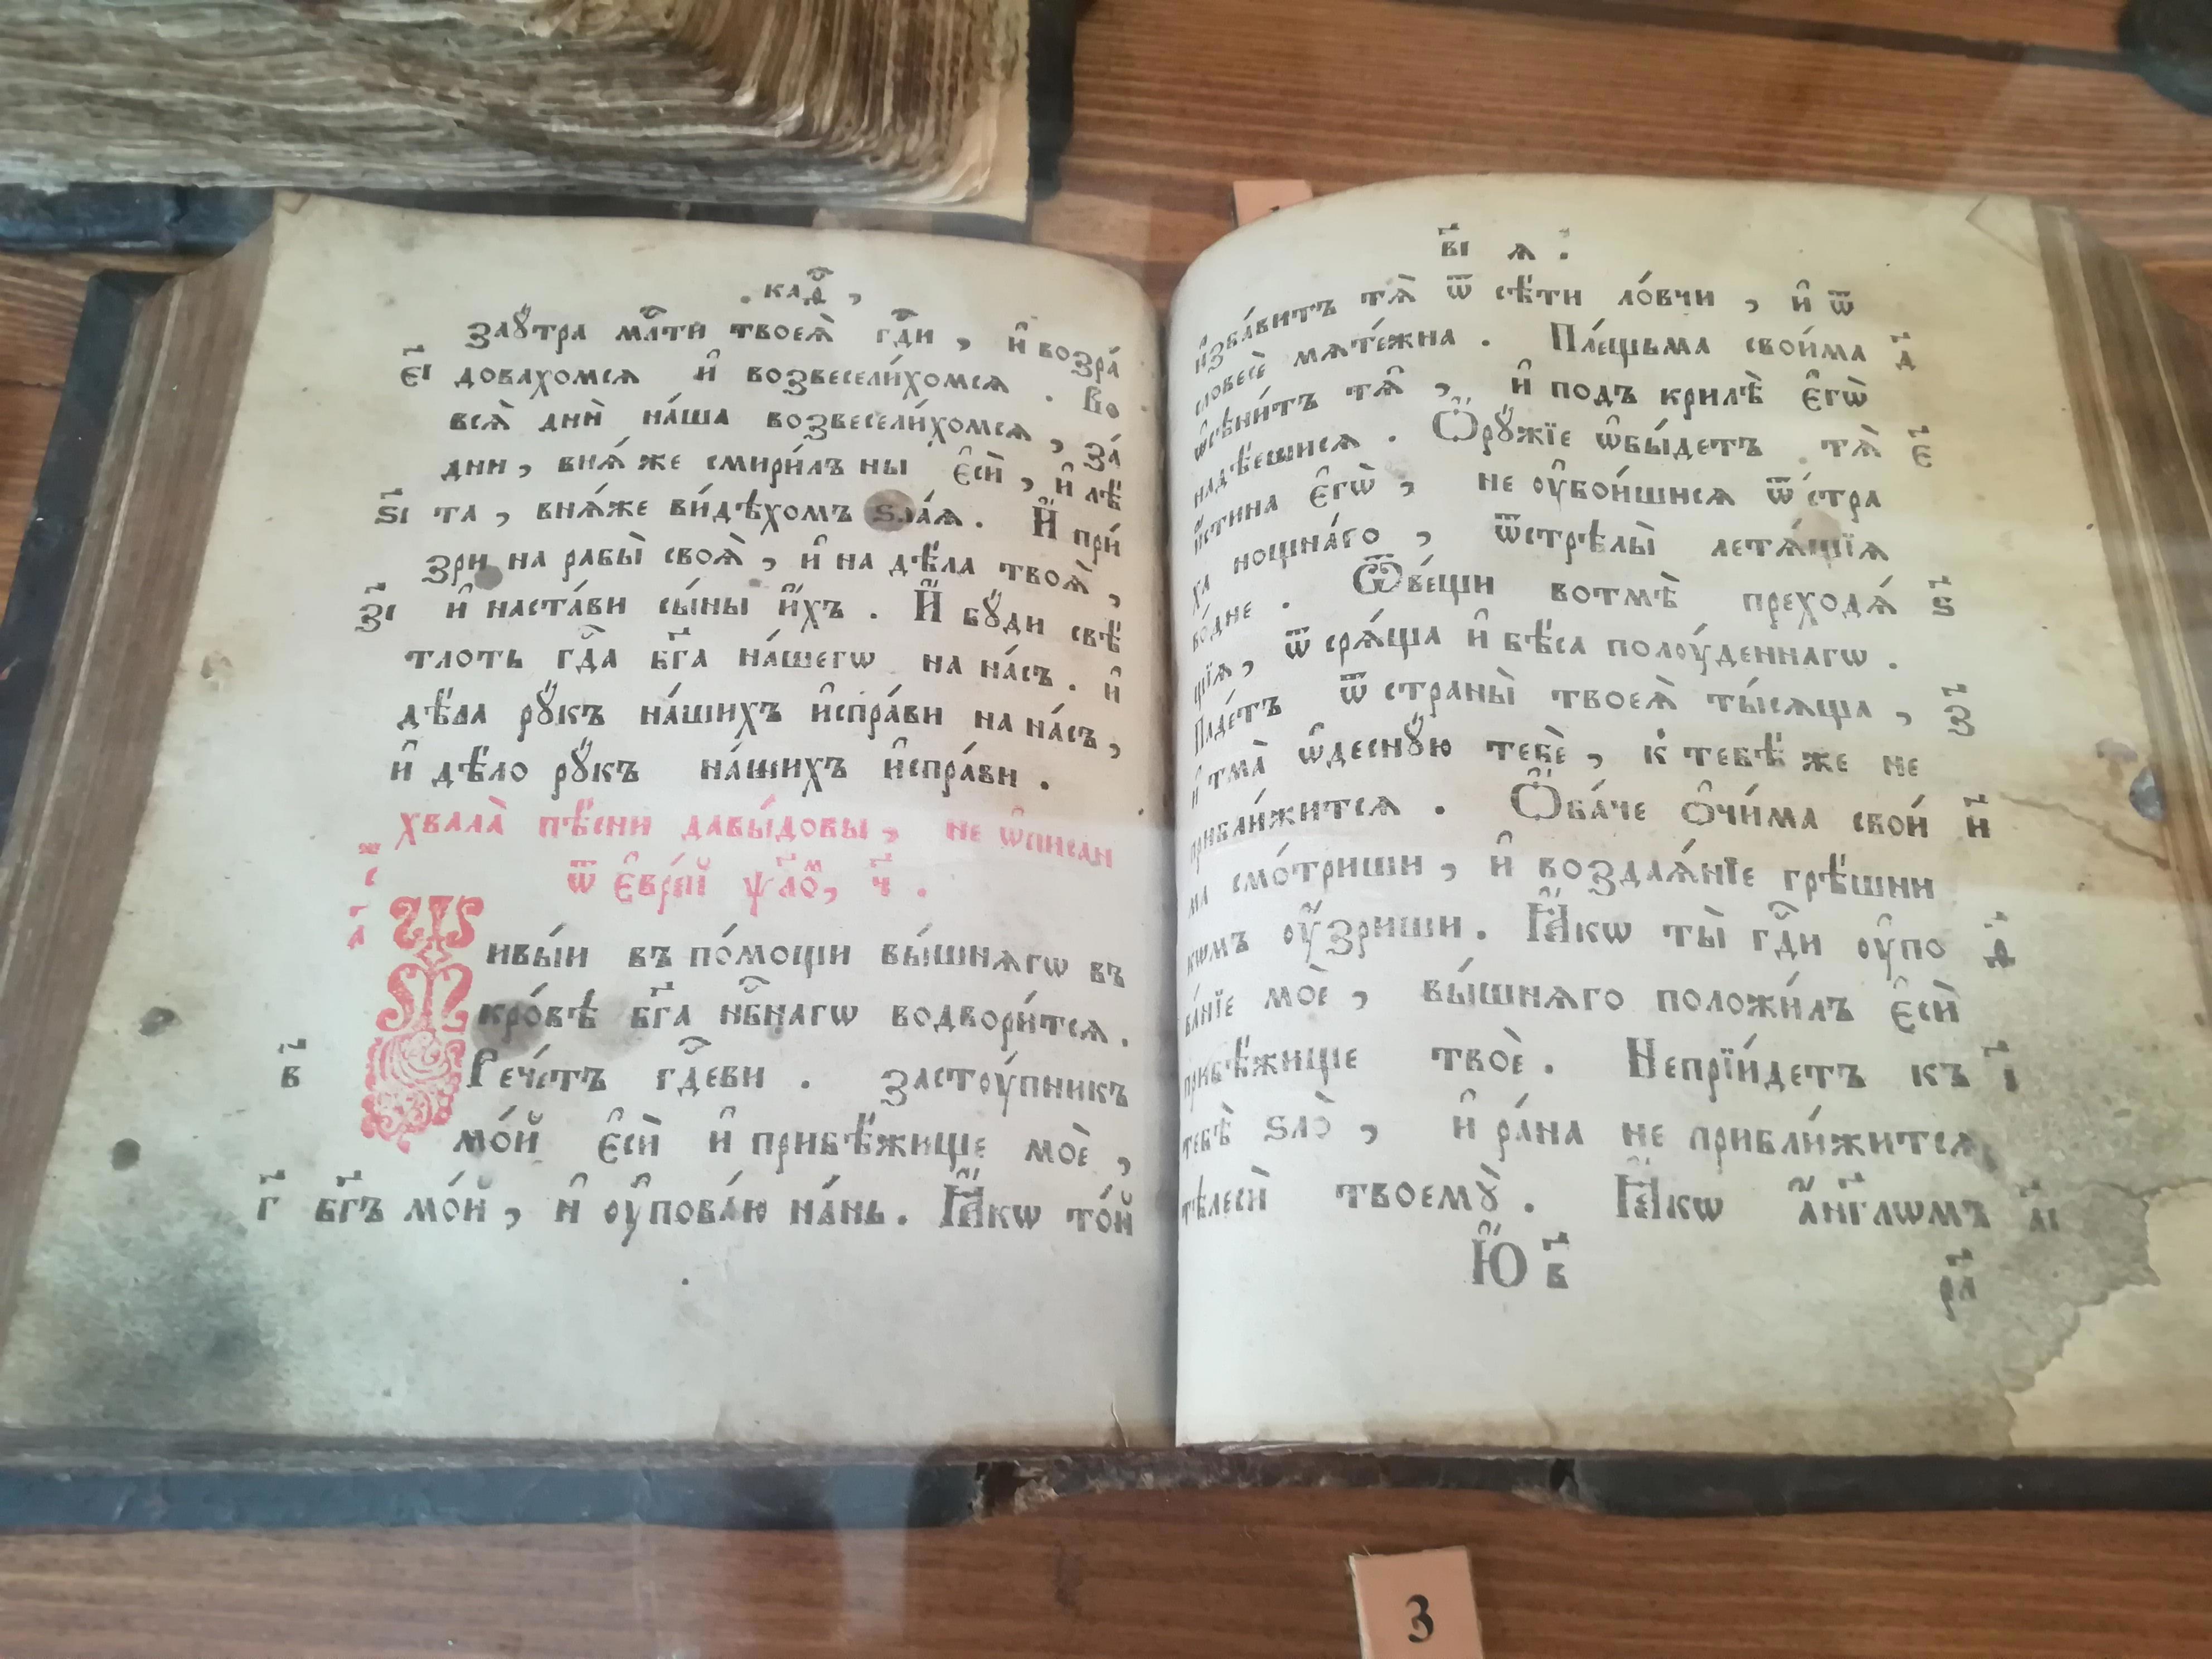 каѳ ,
заꙋ́тра мл҃ти твоеѧ̀ гд҇и , и҆ возра́
є҃і довахомсѧ и҆ возвесели́хомсѧ . Во
всѧ̀ дни̇̀ на́ша возвесели́хомсѧ , за́
дни , внѧ́ же смири́лъ ны є҆сѝ , и҆ лѣ̈
ѕ҃і та , внѧ́же ви́дѣхомъ ѕла́ѧ . И҆́ при́
зри на рабы̀ своѧ̀ , и҆ на дѣ́ла твоѧ̀ ,
з҃і и҆ наста́ви сы́ны и҆́хъ . И҆́ бꙋ́ди свѣ́
тлоть гд҇а бг҃а на́шегѡ на на́съ . и҆
дѣ́ла рꙋ́къ на́шихъ и҆спра́ви на на́съ ,
и҆ дѣ́ло рꙋ́къ на́шихъ и҆спра́ви .
хвала̀ пѣ́сни давы́довы , не ѡ҆писан
ѿ є҆вре́й ѱло́м , ч҃ .
а҃
Живы́и въ по́мощи вы́шнѧгѡ въ
кро́вѣ бг҃а нб҇нагѡ водвори́тсѧ .
в҃ Рече́тъ гд҇еви . застоу́пникъ
мо́й є҆сѝ и҆ прибѣ́жище моѐ ,
г҃ бг҃ъ мо́й , и҆ оу҆пова́ю на́нь . Ꙗ҆́кѡ то́й
в҃і ѧ :
и҆зба́витъ тѧ̀ ѿ сѣ́ти ло́вчи , и҆ ѿ
словесѐ мѧте́жна . Пле́щьма свои́ма д҃
ѡ҆сѣни́тъ тѧ̀ , и҆ подъ крилѣ̀ є҆гѡ̀
надѣ́ешисѧ . Ѻ҆рꙋ́жїе ѡ҆бы́детъ тѧ̀ є҃
и҆́стина є҆гѡ̀ , не оу҆бои́шисѧ ѿ стра
ха нощна́го , ѿстрѣлы̀ летѧ́щїѧ
во́дне . Ѿве́щи вотмѣ̀ преходѧ́ ѕ҃
щїѧ , ѿ срѧ́ща и҆ бѣ́са полоу́деннагѡ .
Паде́тъ ѿ страны̀ твоеѧ̀ ты́сѧща , з҃
и҆ тма̀ ѡ҆деснꙋ́ю тебѐ , к̾ тебѣ́ же не
прибли́житсѧ . Ѻ҆ба́че ѻ҆чи́ма свои́ и҃
ма смо́триши , и҆ воздаѧ́нїе грѣ́шни
кѡмъ оу҆́зриши . Ꙗ҆́кѡ ты̀ гд҇и оу҆по ѳ҃
ва́нїе моѐ , вы́шнѧго положи́лъ є҆сѝ
прибѣ́жище твоѐ . Непрїи́детъ къ і҃
тебѣ̀ ѕло̀ , и҆ ра́на не прибли́житсѧ
тѣлесѝ твоемꙋ̀ . Ꙗ҆́кѡ а҆́нг҃лѡмъ а҃і
Ю҆́ в҃ рл҃
3